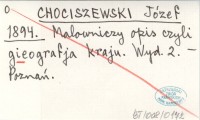 O
CHOCISZEWSKI Józef
1894. Malowniczy opis czyli
gieografja kraju. Wyd. 2. —
Poznań.